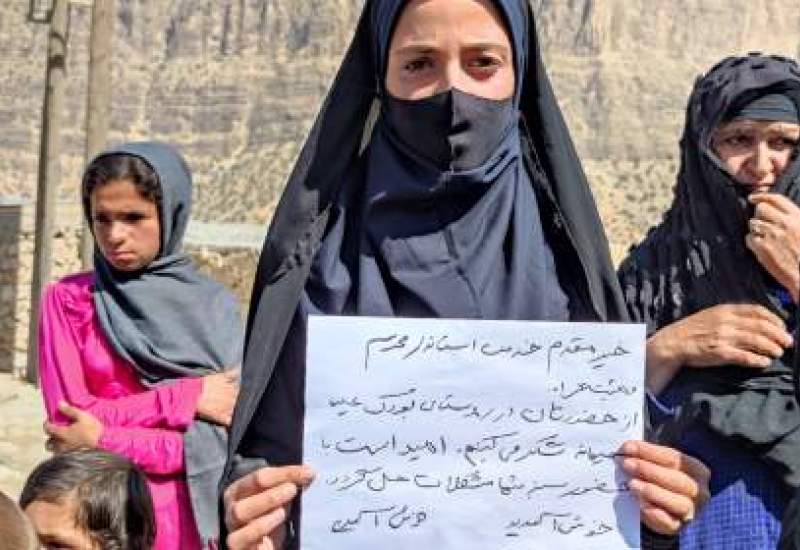 خیر مقدم خدمت استاندار محترم
وهیئت همراه
از حضورتان در روستای
صمیمانه تشکر می کنیم. امید است با
حضور مشکلات حل گردد.
خوش آمدید خوش آمدین